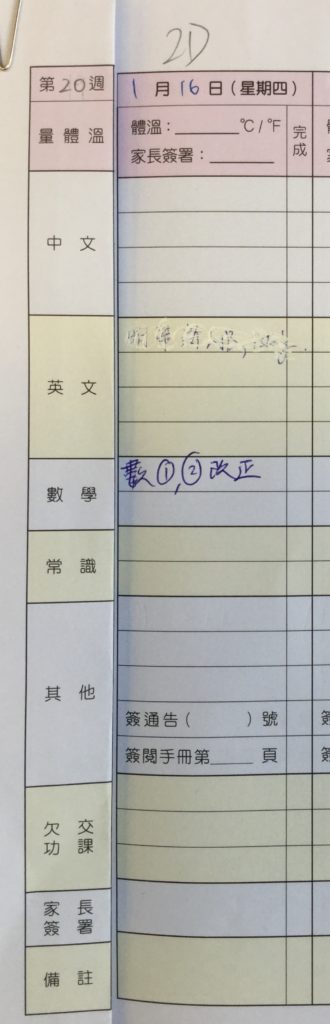 2D
第20週
1月16日(星期四)
量體溫
體溫：______℃/℉
家長簽署：______
完成
中文
英文
數學
數①,②改正
常識
其他
簽通告(　　)號
簽閱手冊第____頁
欠交功課
家長簽署
備註